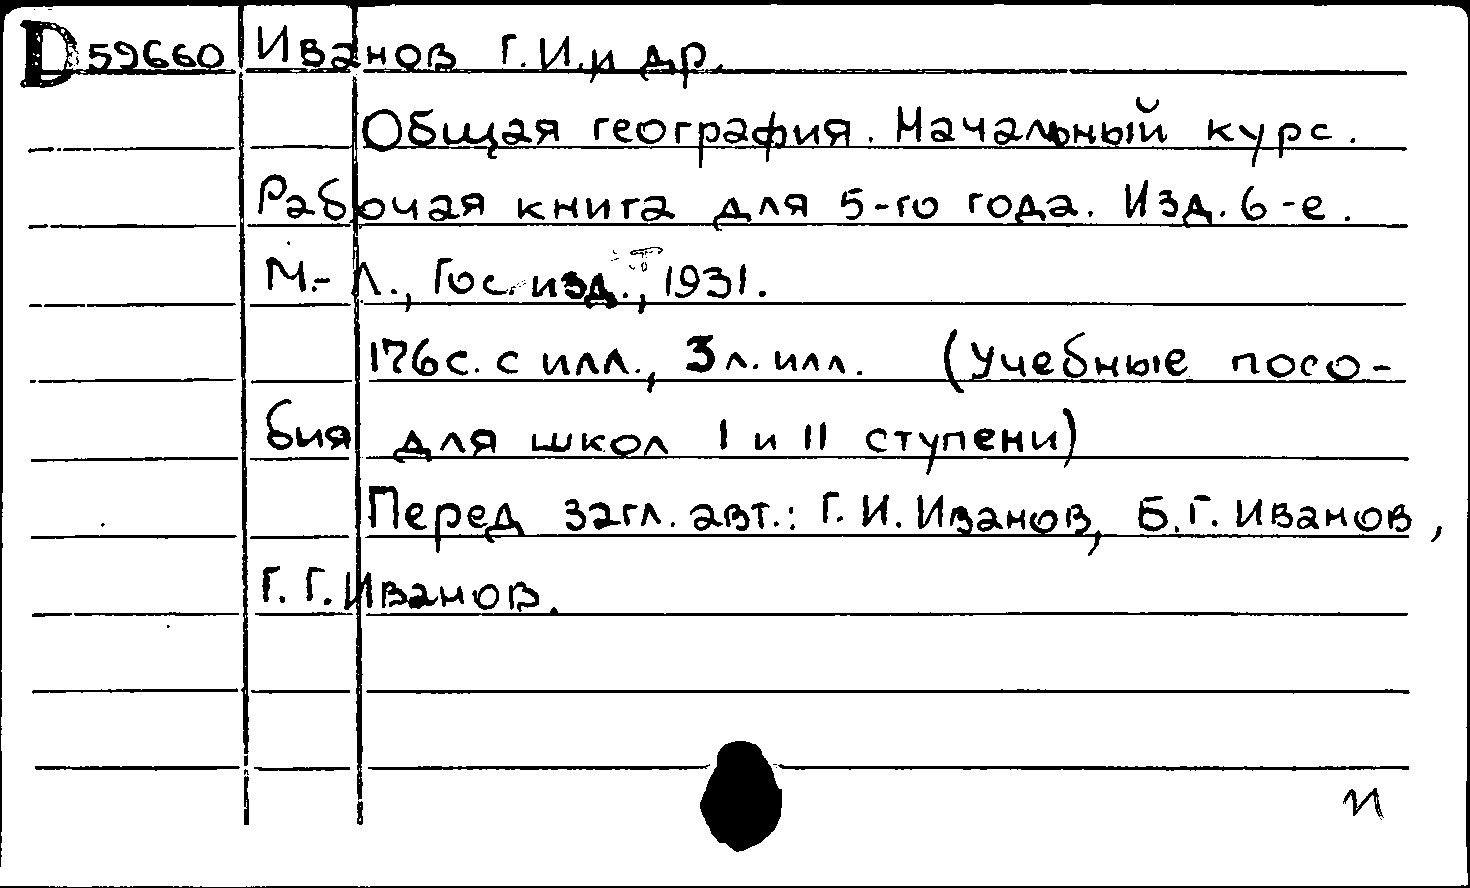 D 59660 Иванов Г.И. и др.
Общая география. Начальный курс.
Рабочая книга для 5-го года. Изд. 6-е.
М.-Л., Гос. изд., 1931.
176 с. с илл., 3 л. илл. (Учебные посо-
бия для школ I и II ступени)
Перед загл. авт.: Г.И. Иванов, Б.Г. Иванов,
Г.Г. Иванов.
и